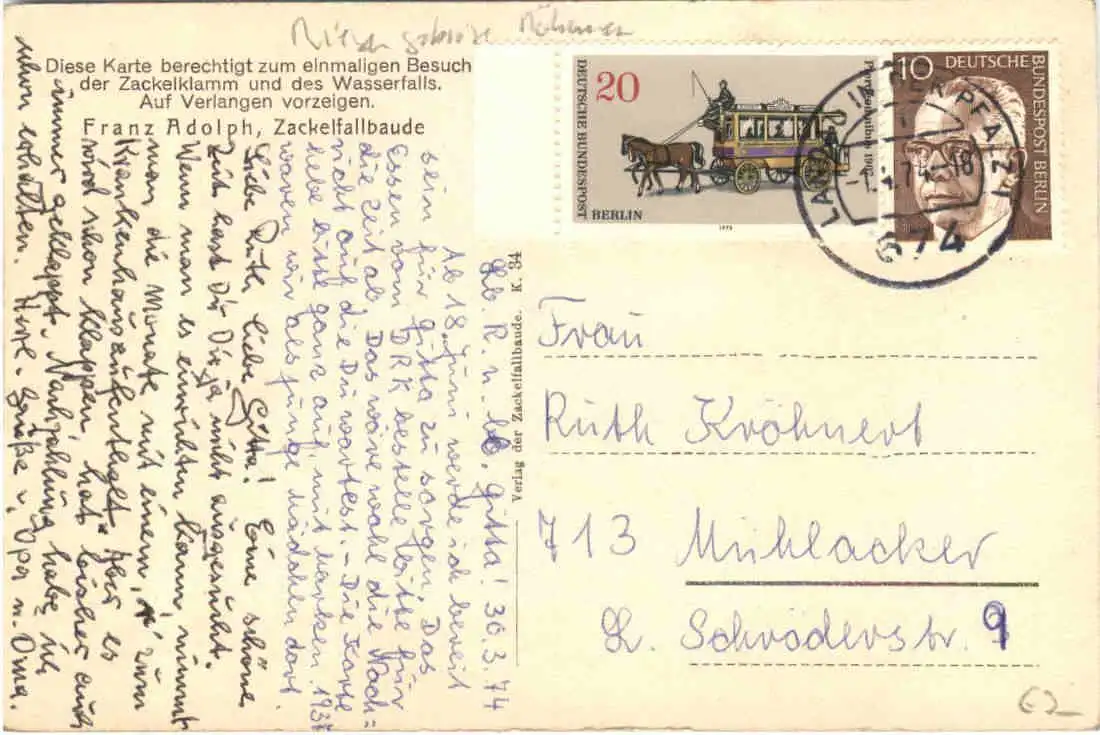 Diese Karte berechtigt zum einmaligen Besuch
der Zackelklamm und des Wasserfalls.
Auf Verlangen vorzeigen.
Franz Adolph, Zackelfallbaude
DEUTSCHE BUNDESPOST
20
BERLIN
Pferdeomnibus 1907
1973
10
DEUTSCHE
BUNDESPOST BERLIN
LANDAU IN DER PFALZ 1
74-18
674
Verlag der Zackelfallbaude. K. 34
Frau
Ruth Kröhnert
713 Mühlacker
L. Schröderstr. 9
62
Lb. R. u. lb. Gitta! 30.3.74
Ab 18. Juni werde ich bereit
sein für Gitta zu sorgen. Das
Essen vom DRK bestelle bitte für
die Zeit ab. Das wäre wohl die Nach=
richt auf die Du wartest. - Die Karte
hebe bitte ganz auf, mit Marken. 193
waren wir als junge Mädchen dort.
Liebe Ruth, liebe Gitta! Eine schöne
Zeit hast Du Dir ja nicht ausgesucht.
Wenn man es einrichten kann, nimmt
man die Monate mit einem "r" zum
Krankenhausaufenthalt. Aber es
wird schon klappen, hat bisher auch
immer geklappt. Nachzahlung habe ich
schon erhalten. Herzl. Grüße v. Opa u. Oma.